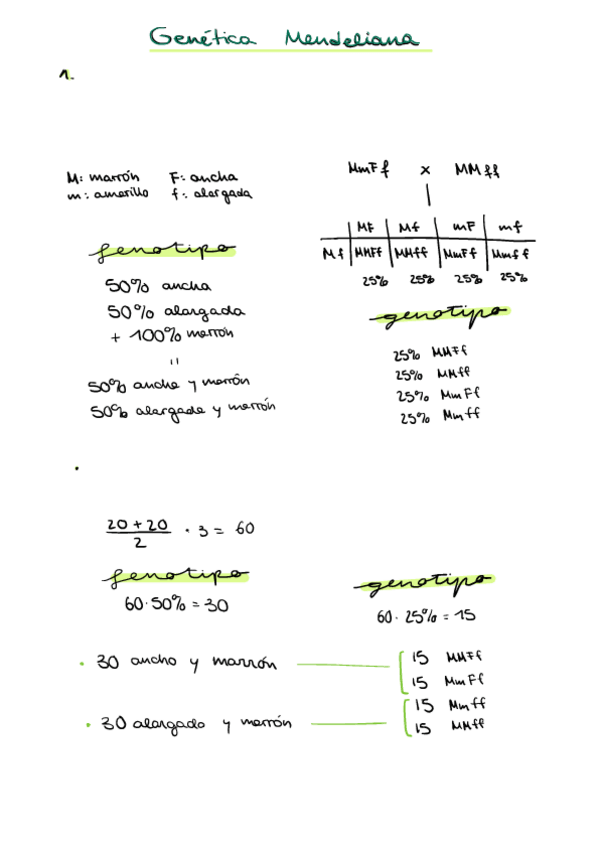 Genética Mendeliana
1.
M: marrón F: ancha
m: amarillo f: alargada
MmFf x MMff
MF Mf mF mf
Mf MMFf MMff MmFf Mmff
25% 25% 25% 25%
fenotipo
50% ancha
50% alargada
+ 100% marrón
=
50% ancha y marrón
50% alargada y marrón
genotipo
25% MMFf
25% MMff
25% MmFf
25% Mmff
20 + 20
2
· 3 = 60
fenotipo
60·50% = 30
genotipo
60· 25% = 15
· 30 ancho y marrón
15 MMFf
15 MmFf
· 30 alargado y marrón
15 Mmff
15 MMff